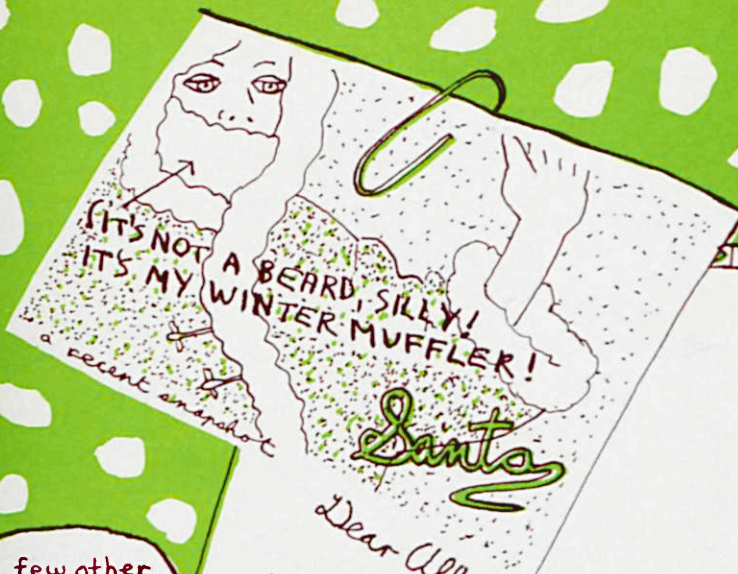 (IT'S NOT A BEARD, SILLY!
IT'S MY WINTER MUFFLER!
a recent snapshot
Santa
Dear
few other